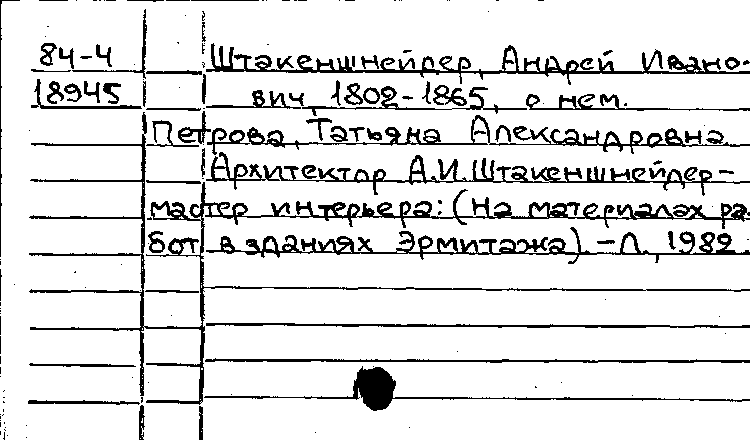 84-4 Штакеншнейдер, Андрей Ивано-
18945 вич, 1802-1865, о нем.
Петрова, Татьяна Александровна
Архитектор А.И.Штакеншнейдер-
мастер интерьера: (На материалах ра
бот в зданиях Эрмитажа) - Л., 1982.